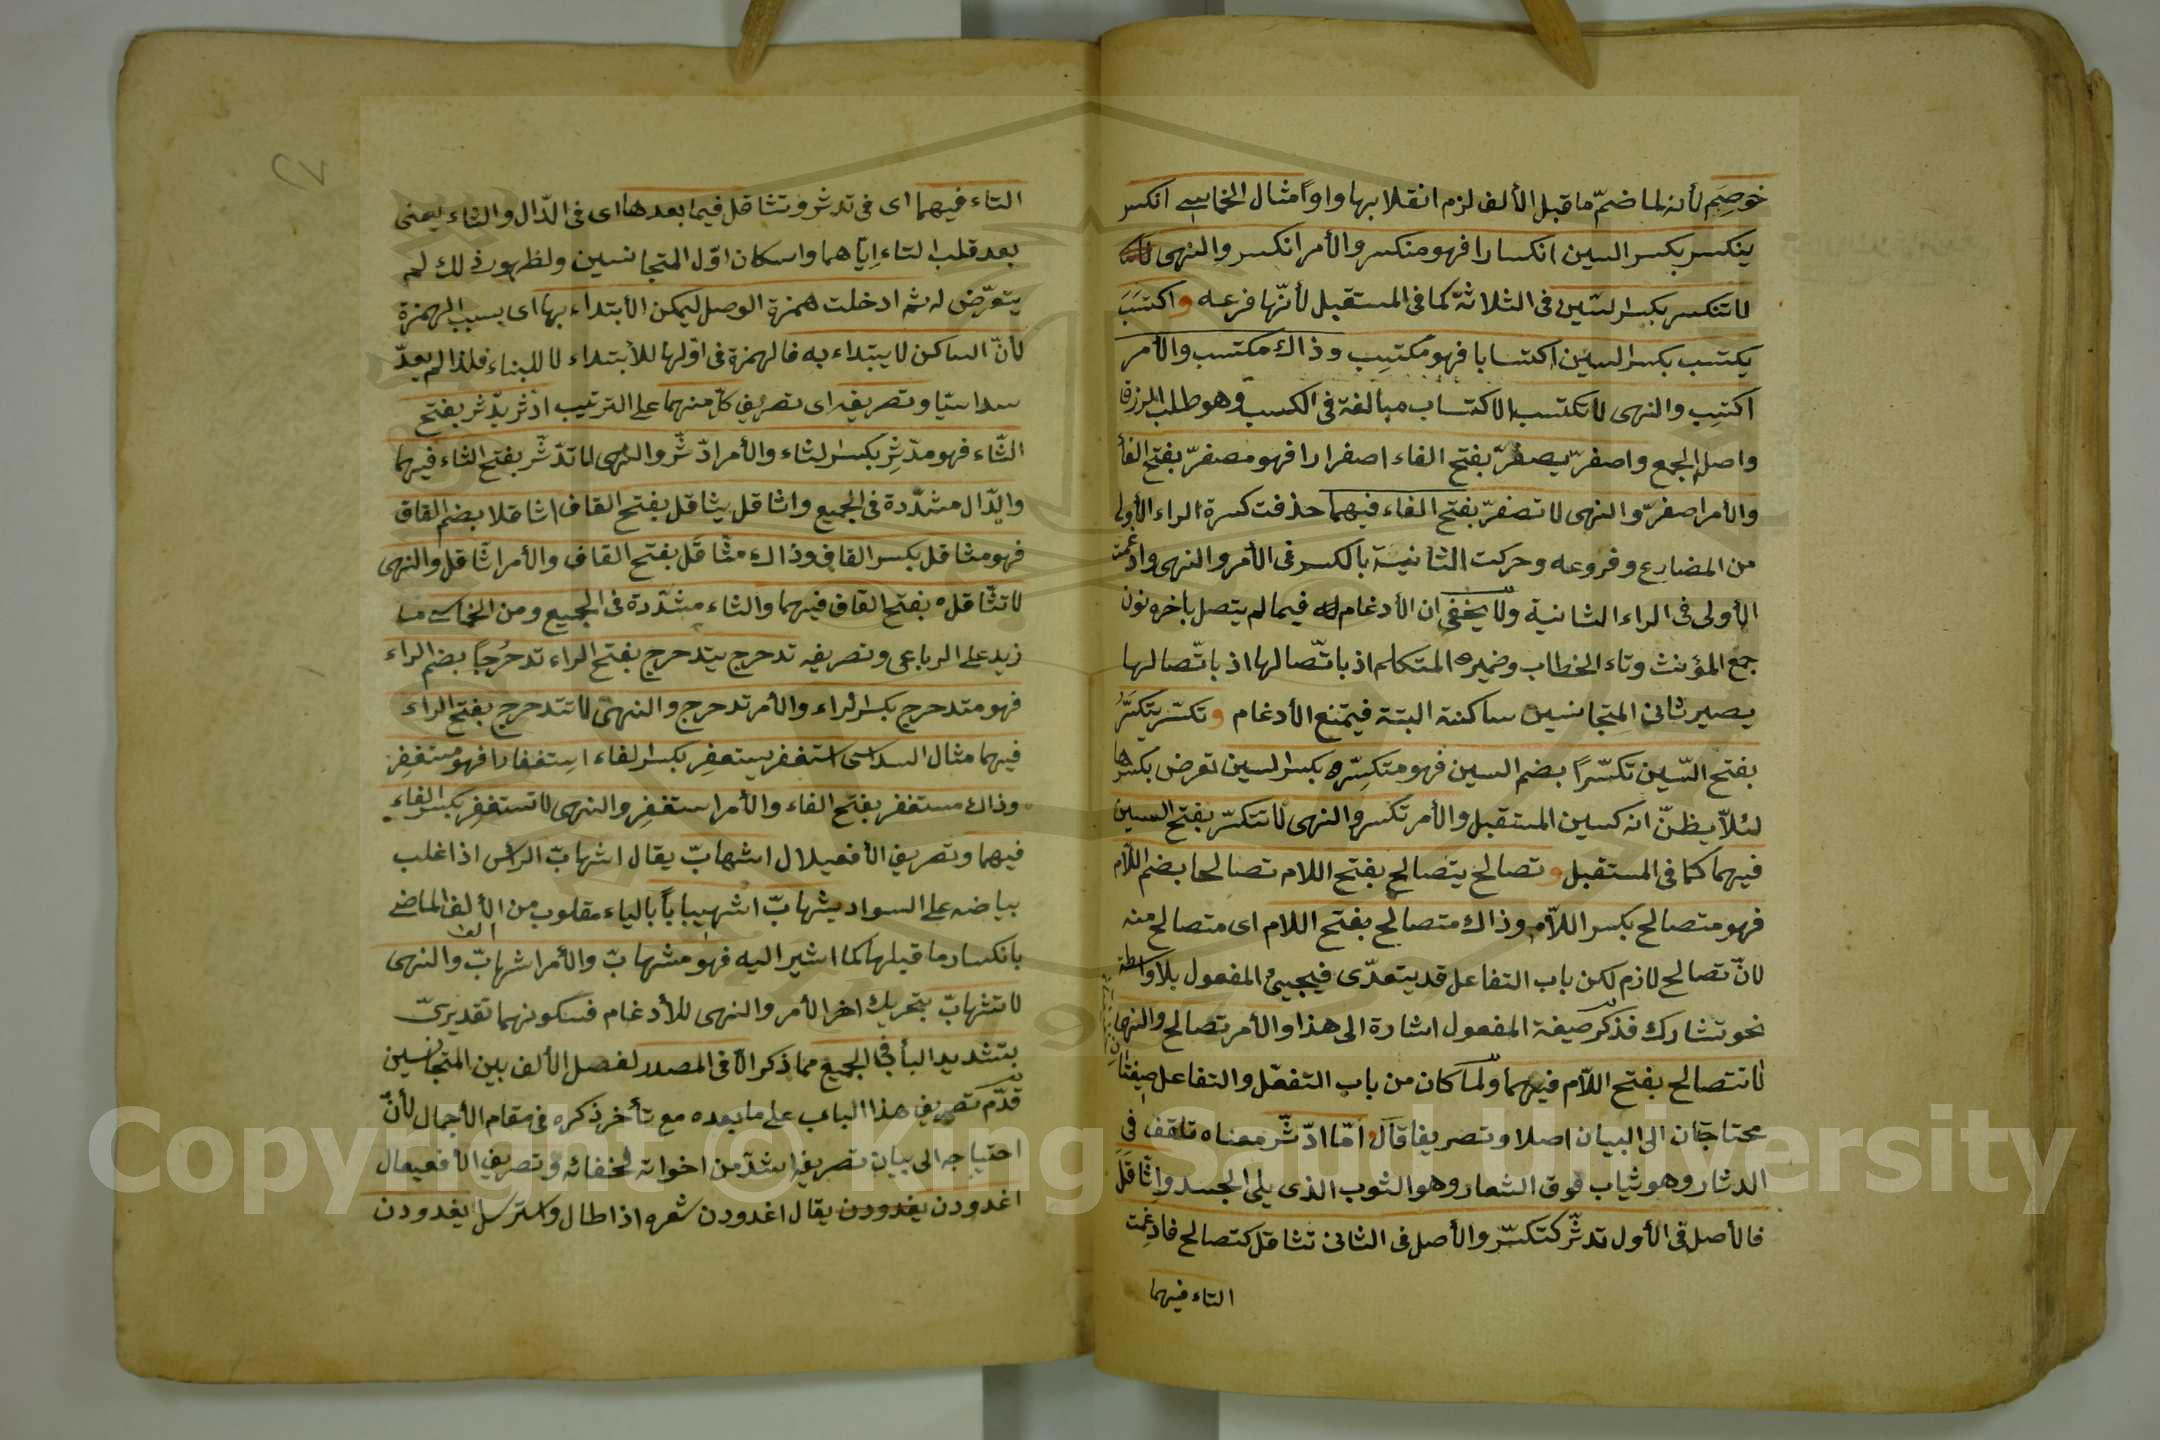 خوصِمَ لأنه لما ضمّ ما قبل الألف لزم انقلابها واواً مثال الخماسي انكسر
ينكسر بكسر السين انكسارا فهو منكسر والأمر انكسر والنهى
لا تنكسر بكسر السّين فى الثلاثة كما فى المستقبل لأنّها فرعه و اكتسَبَ
يكتسب بكسر السين اكتسابا فهو مكتسِب وذاك مكتسب والأمر
اكتسِب والنهى لا تكتسب الاكتساب مبالغة فى الكسب وهو طلب الرزق
واصله الجمع واصفرّ يصفرّ بفتح الفاء اصفرارا فهو مصفرّ بفتح الفأ
والأمر اصفرّ والنهى لا تصفرّ بفتح الفاء فيهما حذفت كسرة الراء الأولى
من المضارع وفروعه وحركت الثانية بالكسر فى الأمر والنهى وادغمت
الأولى فى الراء الثانية ولا يخفى ان الأدغام فيما لم يتصل باخره نون
جمع المؤنث وتاء الخطاب وضميره المتكلم اذ باتّصالها اذ باتّصالها
يصير ثانى المتجانسين ساكنة البتة فيمتنع الأدغام و تكسّر يتكسَّرُ
بفتح السّين تكسّراً بضم السين فهو متكسِّره بكسر السين تعرض بكسرها
لئلاّ يظنّ انه كسين المستقبل والأمر تكسر والنهى لا تتكسّر بفتح السين
فيهما كما فى المستقبل و تصالح يتصالح بفتح اللام تصالحا بضم اللّام
فهو متصالح بكسر اللاّم وذاك متصالح بفتح اللام اى متصالح منه
لانّ تصالح لازم لكن باب التفاعل قد يتعدّى فيجيئ المفعول بلا واسطة
نحو تشارك فذكر صيغة المفعول اشارة الى هذا والأمر تصالح والنهى
لا تتصالح بفتح اللّام فيهما ولمّا كان من باب التفعّل والتفاعل صيغتان
محتاجتان الى البيان اصلا وتصريفا قال و امّا ادّثّر معناه تلفف فى
الدثار وهو ثياب فوق الشعار وهو الثوب الذى يلى الجسد واثّاقَلَ
فالأصل فى الأول تدثّر كتكسّر والأصل فى الثانى تثاقل كتصالح فادغمت
التاء فيهما
التاء فيهما اى فى تدثر وتثاقل فيما بعدها اى فى الدّال والثاء يعنى
بعد قلب التاء ايّاهما واسكان اوّل المتجانسين ولظهور ذلك لم
يتعرّض له ثم ادخلت همزة الوصل ليمكن الأبتداء بها اى بسبب الهمزة
لأنّ الساكن لا يبتداء به فالهمزة فى اوّلها للأبتداء لا للبناء فلذا لم يعدّ
سداسيّا وتصريفه اى تصريف كلّ منهما على الترتيب ادّثر يدّثر بفتح
الثّاء فهو مدّثِر بكسر الثاء والأمر ادّثّر والنهى لا تدّثّر بفتح الثاء فيهما
والدّال مشدّدة فى الجميع واثاقل يثاقل بفتح القاف اثاقلا بضم القاف
فهو مثاقل بكسر القاف وذاك مثّاقَل بفتح القاف والأمر اثّاقل والنهى
لا تثّاقل بفتح القاف فيهما والثاء مشدّدة فى الجميع ومن الخماسى ما
زيد على الرباعى وتصريفه تدحرج يتدحرج بفتح الراء تدحرُجاً بضم الراء
فهو متدحرج بكسر الراء والأمر تدحرج والنهى لا تتدحرج بفتح الراء
فيهما مثال السداسى استغفر يستغفِر بكسر الفاء استغفارا فهو مستغفِر
وذاك مستغفر بفتح الفاء والأمر استغفِر والنهى لا تستغفِر بكسر الفاء
فيهما وتصريف الأفعيلال اشهابّ يقال اشهابّ الراس اذا غلب
بياضه على السواد يشهابّ اشهيباباً بالياء مقلوب من الألف الماضى
بانكسار ما قبلها كما اشير اليه فهو مشهابّ والأمر اشهابّ والنهى
لا تشهابّ بتحريك اخر الأمر والنهى للأدغام فسكونهما تقديرىّ
بتشديد البأ فى الجميع مما ذكر الاّ فى المصدر لفصل الألف بين المتجانسين
قدّم تصريف هذا الباب على ما بعده مع تأخر ذكره فى مقام الأجمال لأنّ
احتياجه الى بيان تصريفه اشدّ من اخواته لخفائه و تصريف الأفعيعال
اغدودن يغدودن يقال اغدودن شعره اذا طال واسترسل ايغدودن
Copyright © King Saud University